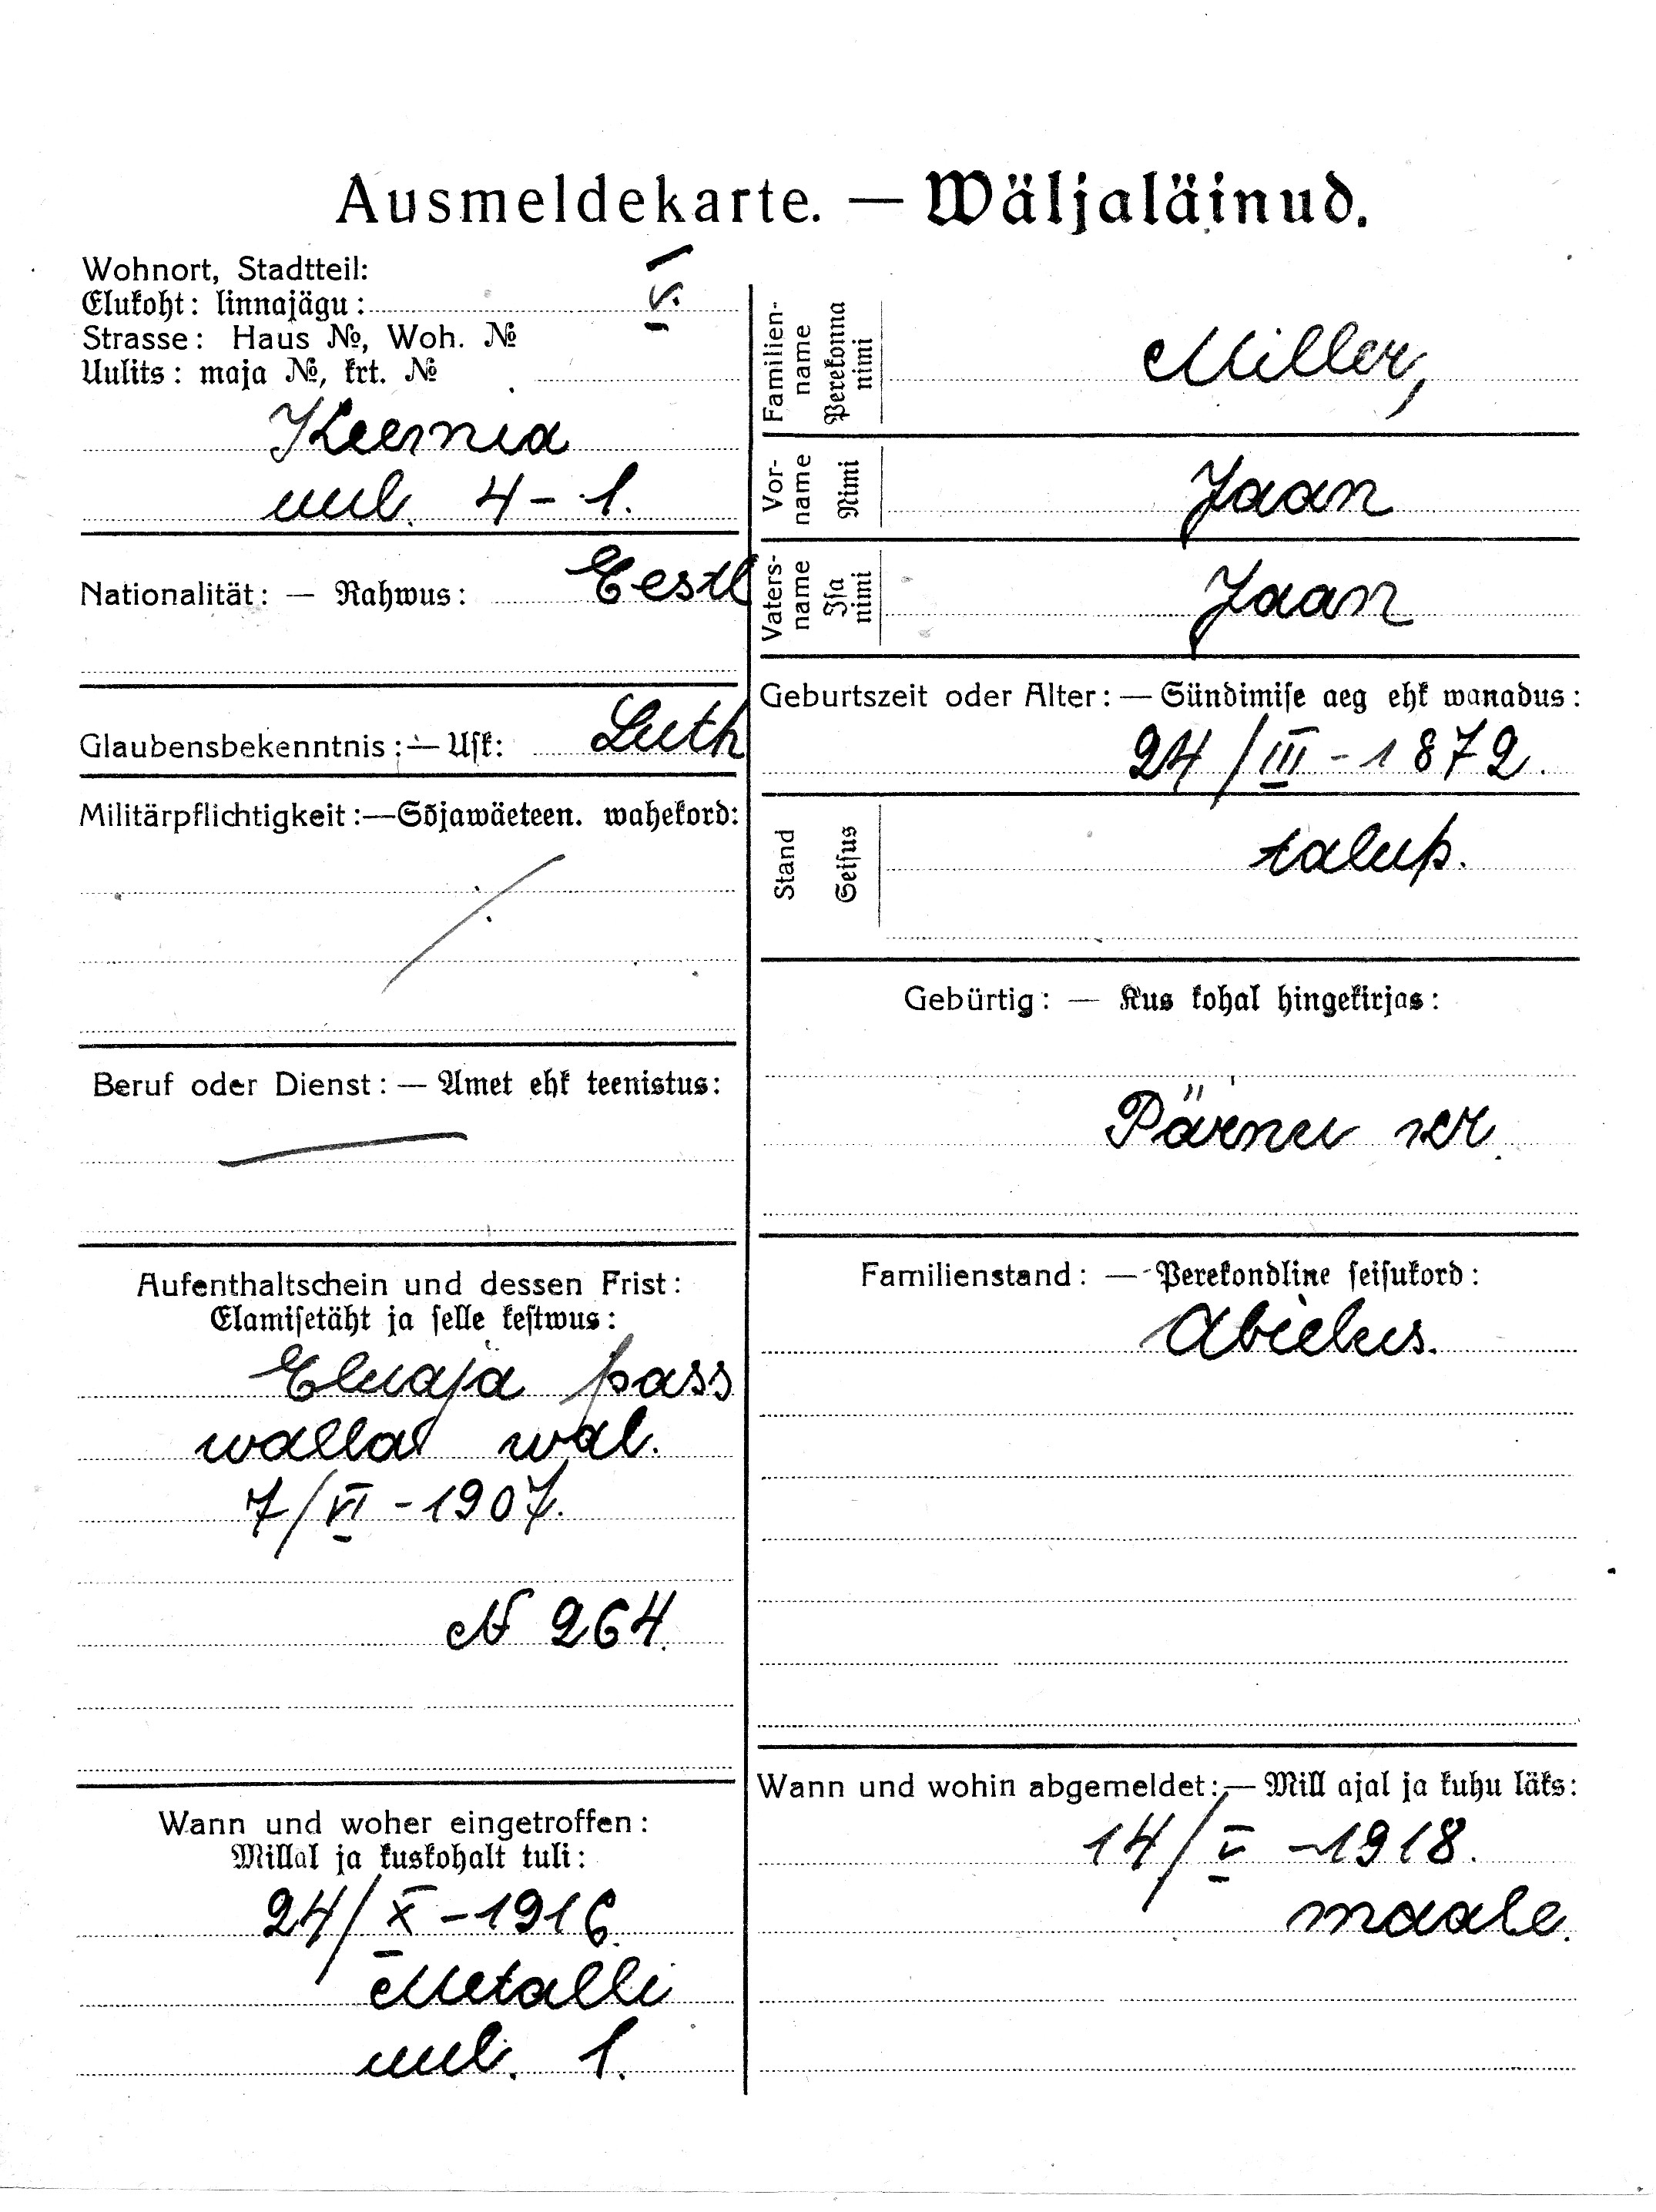 Ausmeldekarte. — Wäljaläinud.
Wohnort, Stadtteil:
Elukoht: linnajägu: V.
Strasse: Haus №, Woh. №
Uulits: maja №, krt. №
uul. 4-1.
Nationalität: — Rahwus: Eestl
Glaubensbekenntnis: — Usk: Luth
Militärpflichtigkeit:—Sõjawäeteen. wahekord:
Beruf oder Dienst: — Amet ehk teenistus:
Aufenthaltschein und dessen Frist:
Elamisetäht ja selle kestwus:
Eluaja pass
walla wal.
7/VI -1907.
№ 264.
Wann und woher eingetroffen:
Millal ja kuskohalt tuli:
24/X-1916.
Metalli
uul. 1.
Familien-
name
Perekonna
nimi
Miller,
Vor-
name
Nimi
Jaan
Vaters-
name
Isa
nimi
Jaan
Geburtszeit oder Alter: — Sündimise aeg ehk wanadus:
24/III-1872.
Stand
Seisus
talup.
Gebürtig: — Kus kohal hingekirjas:
Pärnu kr.
Familienstand: — Perekondline seisukord:
Abielus.
Wann und wohin abgemeldet:— Mill ajal ja kuhu läks:
14/V -1918.
maale.